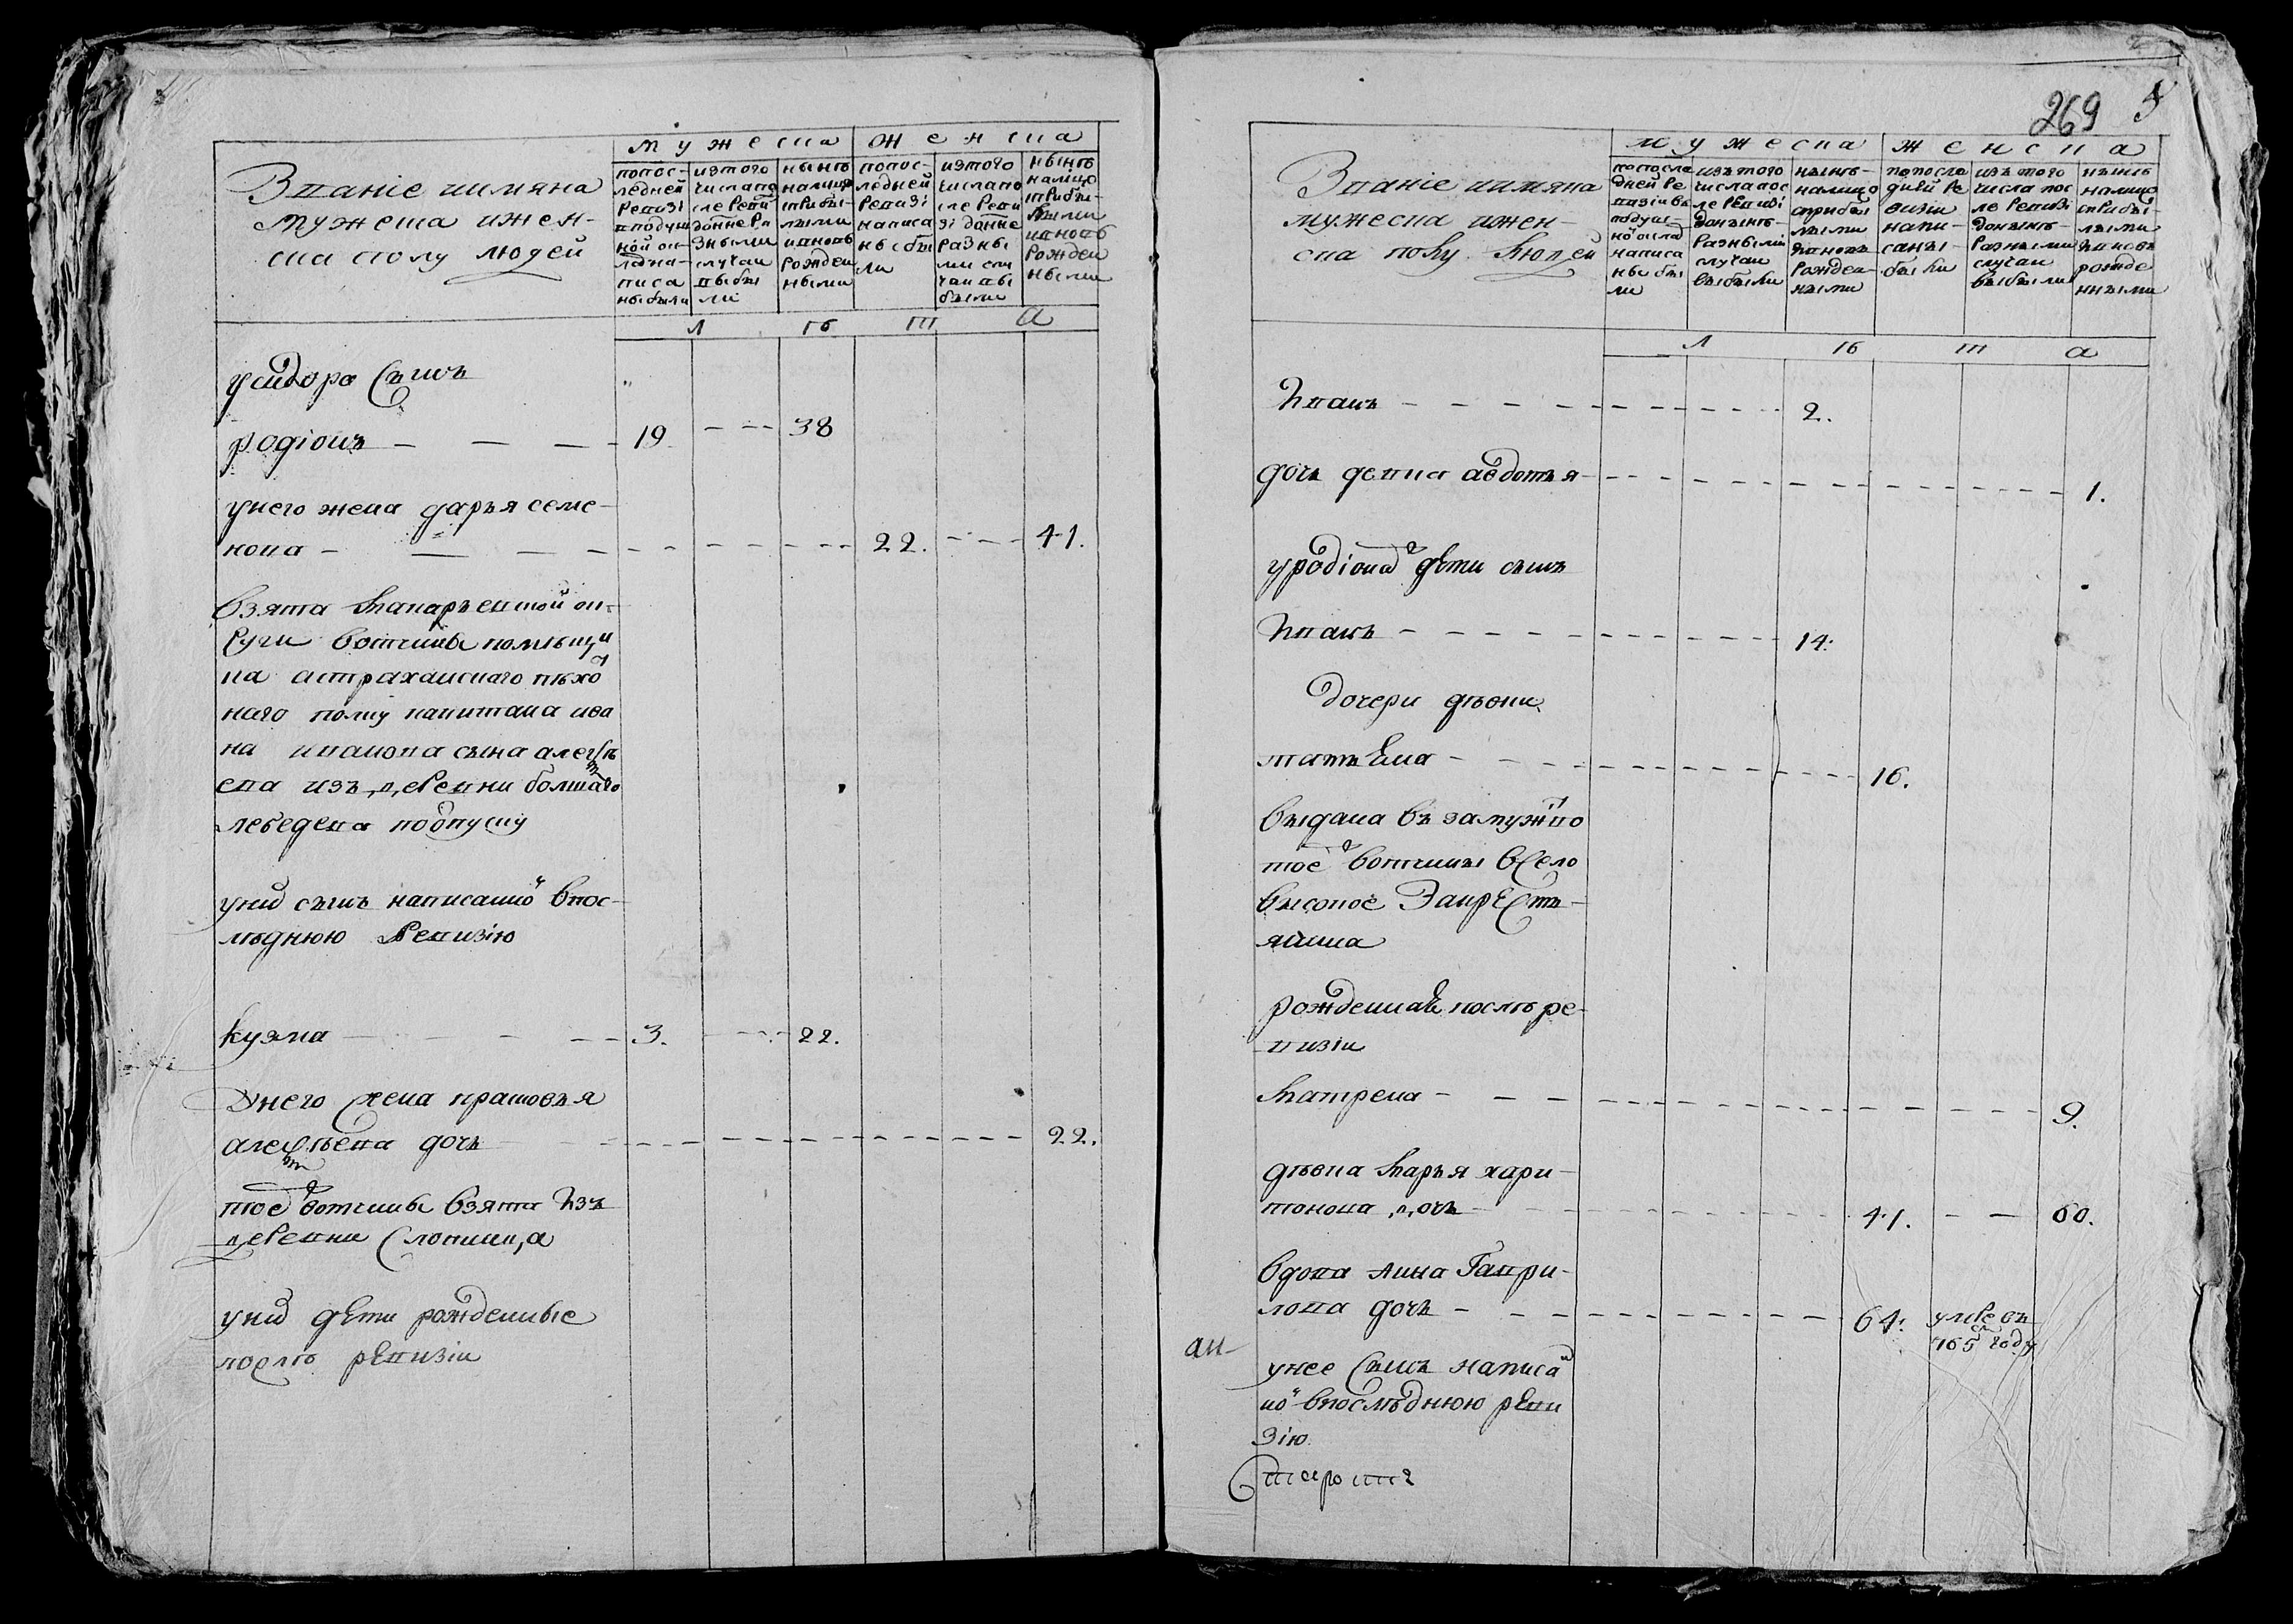 Звание имяна
мужеска ижен-
ска полу людей
мужеска
женска
попос-
ледней
ревизі
вподуш
ной ок-
ладна-
писа
ныбыли
изтого
числапо
слереви
доннера
зными
случаи
выбы
лі
нынѣ
налицо
сприбы-
лыми
ивновь
рожден
ными
попос-
ледней
ревизі
написа
ны бы
ли
изтого
числапо
сле реви
зі донне
разны
ми слу
чаи вы
были
нынѣ
налицо
сприбы-
лыми
ивновь
рожден
ными
л ѣ т а
усидора сынъ
родіонъ 19 38
унего жена дарья семе-
нова 22. 41.
взята
руги вотчины помѣщи
ка астраханскаго пѣхо
наго полку капитана ива
на иванова сына алеѯѣ
ева изъ деревни болшаго
лебедева поопуску
унихъ сынъ написанной впос-
лѣднюю ревизію
кузма 3. 22.
Унего жена прасковья
алеѯѣева дочь 22.
тоеъ вотчины взята изъ
деревни
унихъ дети рожденные
послѣ ревизіи
269
5
Звание имяна
мужеска ижен-
ска полу людей
мужеска
женска
попосле
дней ре
визіивъ
подуш-
нойоклад
написа
ны бы
ли
изътого
числапос
ле ревизі
донынѣ-
разными
случаи
выбыли
нынѣ-
налицо
сприбы
лыми
ивновь
рожден-
ными
попосле
дней ре
визіи
напи-
саны-
были
изъ того
числа пос
ле ревизі
донынѣ-
разными
случаи
выбыли
нынѣ
налицо
сприбы-
лыми
ивновь
рожде
нными
л ѣ т а
Иванъ 2.
дочь девка авдотья 1.
уродіона дети сынъ
Иванъ 14.
дочери дѣвки
татьяна 16.
выдана въ замужство
тоеъ вотчины всело
высокое
рожденная послѣ ре-
визіи
катрена 9.
дѣвка марья хари-
тонова дочь 41. 60.
вдова анна Гаври-
лова дочь 64. умре въ
765м году
унее сынъ написан
ной впослѣднюю реви
зію
Староста